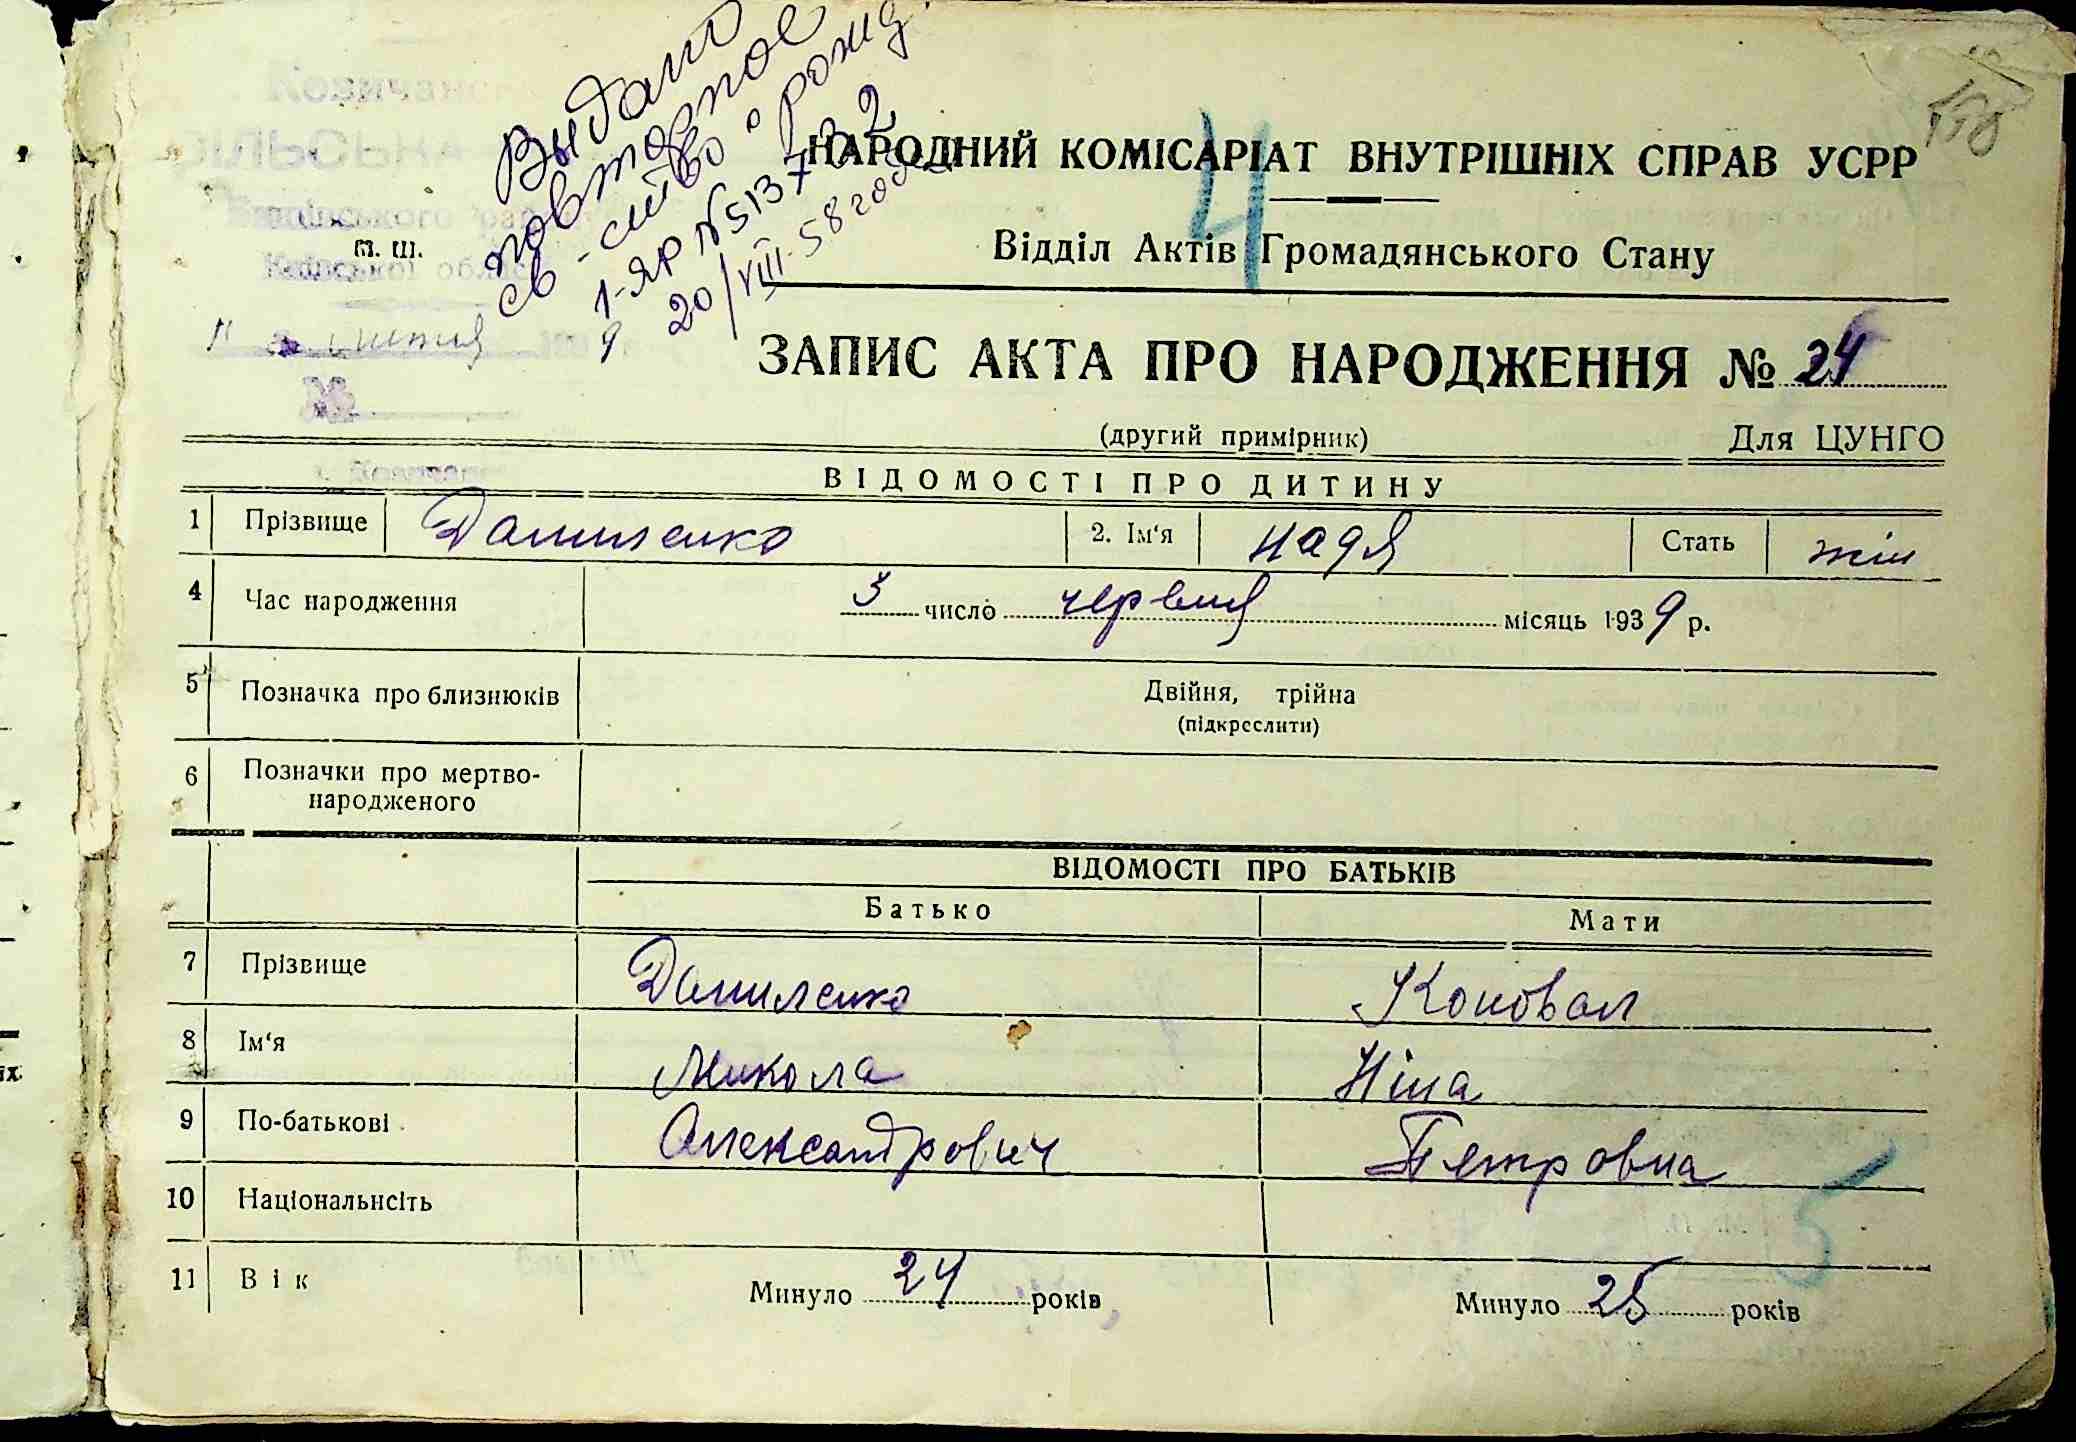 Выдано
повторное
св-ство о рожд.
1-ЯР №513732
20/VIII-58 года
158
НАРОДНИЙ КОМІСАРІАТ ВНУТРІШНІХ СПРАВ УСРР
4
Відділ Актів Громадянського Стану
ЗАПИС АКТА ПРО НАРОДЖЕННЯ № 24
(другий примірник) Для ЦУНГО
ВІДОМОСТІ ПРО ДИТИНУ
1 Прізвище Даниленко 2. Ім‘я Надя Стать жін
4 Час народження 3 число червня місяць 1939 р.
5 Позначка про близнюків Двійня, трійна
(підкреслити)
6 Позначки про мертво-
народженого
ВІДОМОСТІ ПРО БАТЬКІВ
Батько Мати
7 Прізвище Даниленко Коновал
8 Ім‘я Микола Ніна
9 По-батькові Александрович Петровна
10 Національнсіть
5
11 Вік Минуло 24 років Минуло 25 років